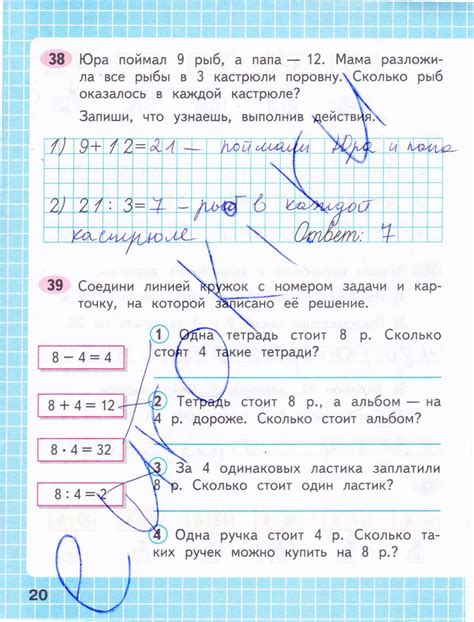 38 Юра поймал 9 рыб, а папа — 12. Мама разложи-
ла все рыбы в 3 кастрюли поровну. Сколько рыб
оказалось в каждой кастрюле?
Запиши, что узнаешь, выполнив действия.
1) 9+12=21 — поймали Юра и папа
2) 21:3=7 — рыб в каждой
кастрюле Ответ: 7
39 Соедини линией кружок с номером задачи и кар-
точку, на которой записано её решение.
8 − 4 = 4
8 + 4 = 12
8 · 4 = 32
8 : 4 = 2
1 Одна тетрадь стоит 8 р. Сколько
стоят 4 такие тетради?
2 Тетрадь стоит 8 р., а альбом — на
4 р. дороже. Сколько стоит альбом?
3 За 4 одинаковых ластика заплатили
8 р. Сколько стоит один ластик?
4 Одна ручка стоит 4 р. Сколько та-
ких ручек можно купить на 8 р.?
20